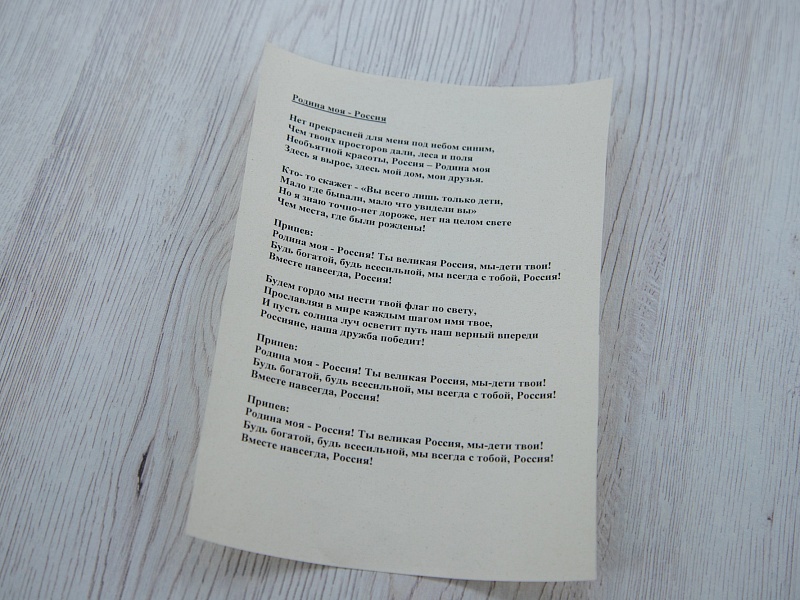 Родина моя - Россия
Нет прекрасней для меня под небом синим,
Чем твоих просторов дали, леса и поля
Необъятной красоты, Россия – Родина моя
Здесь я вырос, здесь мой дом, мои друзья.
Кто- то скажет - «Вы всего лишь только дети,
Мало где бывали, мало что увидели вы»
Но я знаю точно-нет дороже, нет на целом свете
Чем места, где были рождены!
Припев:
Родина моя - Россия! Ты великая Россия, мы-дети твои!
Будь богатой, будь всесильной, мы всегда с тобой, Россия!
Вместе навсегда, Россия!
Будем гордо мы нести твой флаг по свету,
Прославляя в мире каждым шагом имя твое,
И пусть солнца луч осветит путь наш верный впереди
Россияне, наша дружба победит!
Припев:
Родина моя - Россия! Ты великая Россия, мы-дети твои!
Будь богатой, будь всесильной, мы всегда с тобой, Россия!
Вместе навсегда, Россия!
Припев:
Родина моя - Россия! Ты великая Россия, мы-дети твои!
Будь богатой, будь всесильной, мы всегда с тобой, Россия!
Вместе навсегда, Россия!